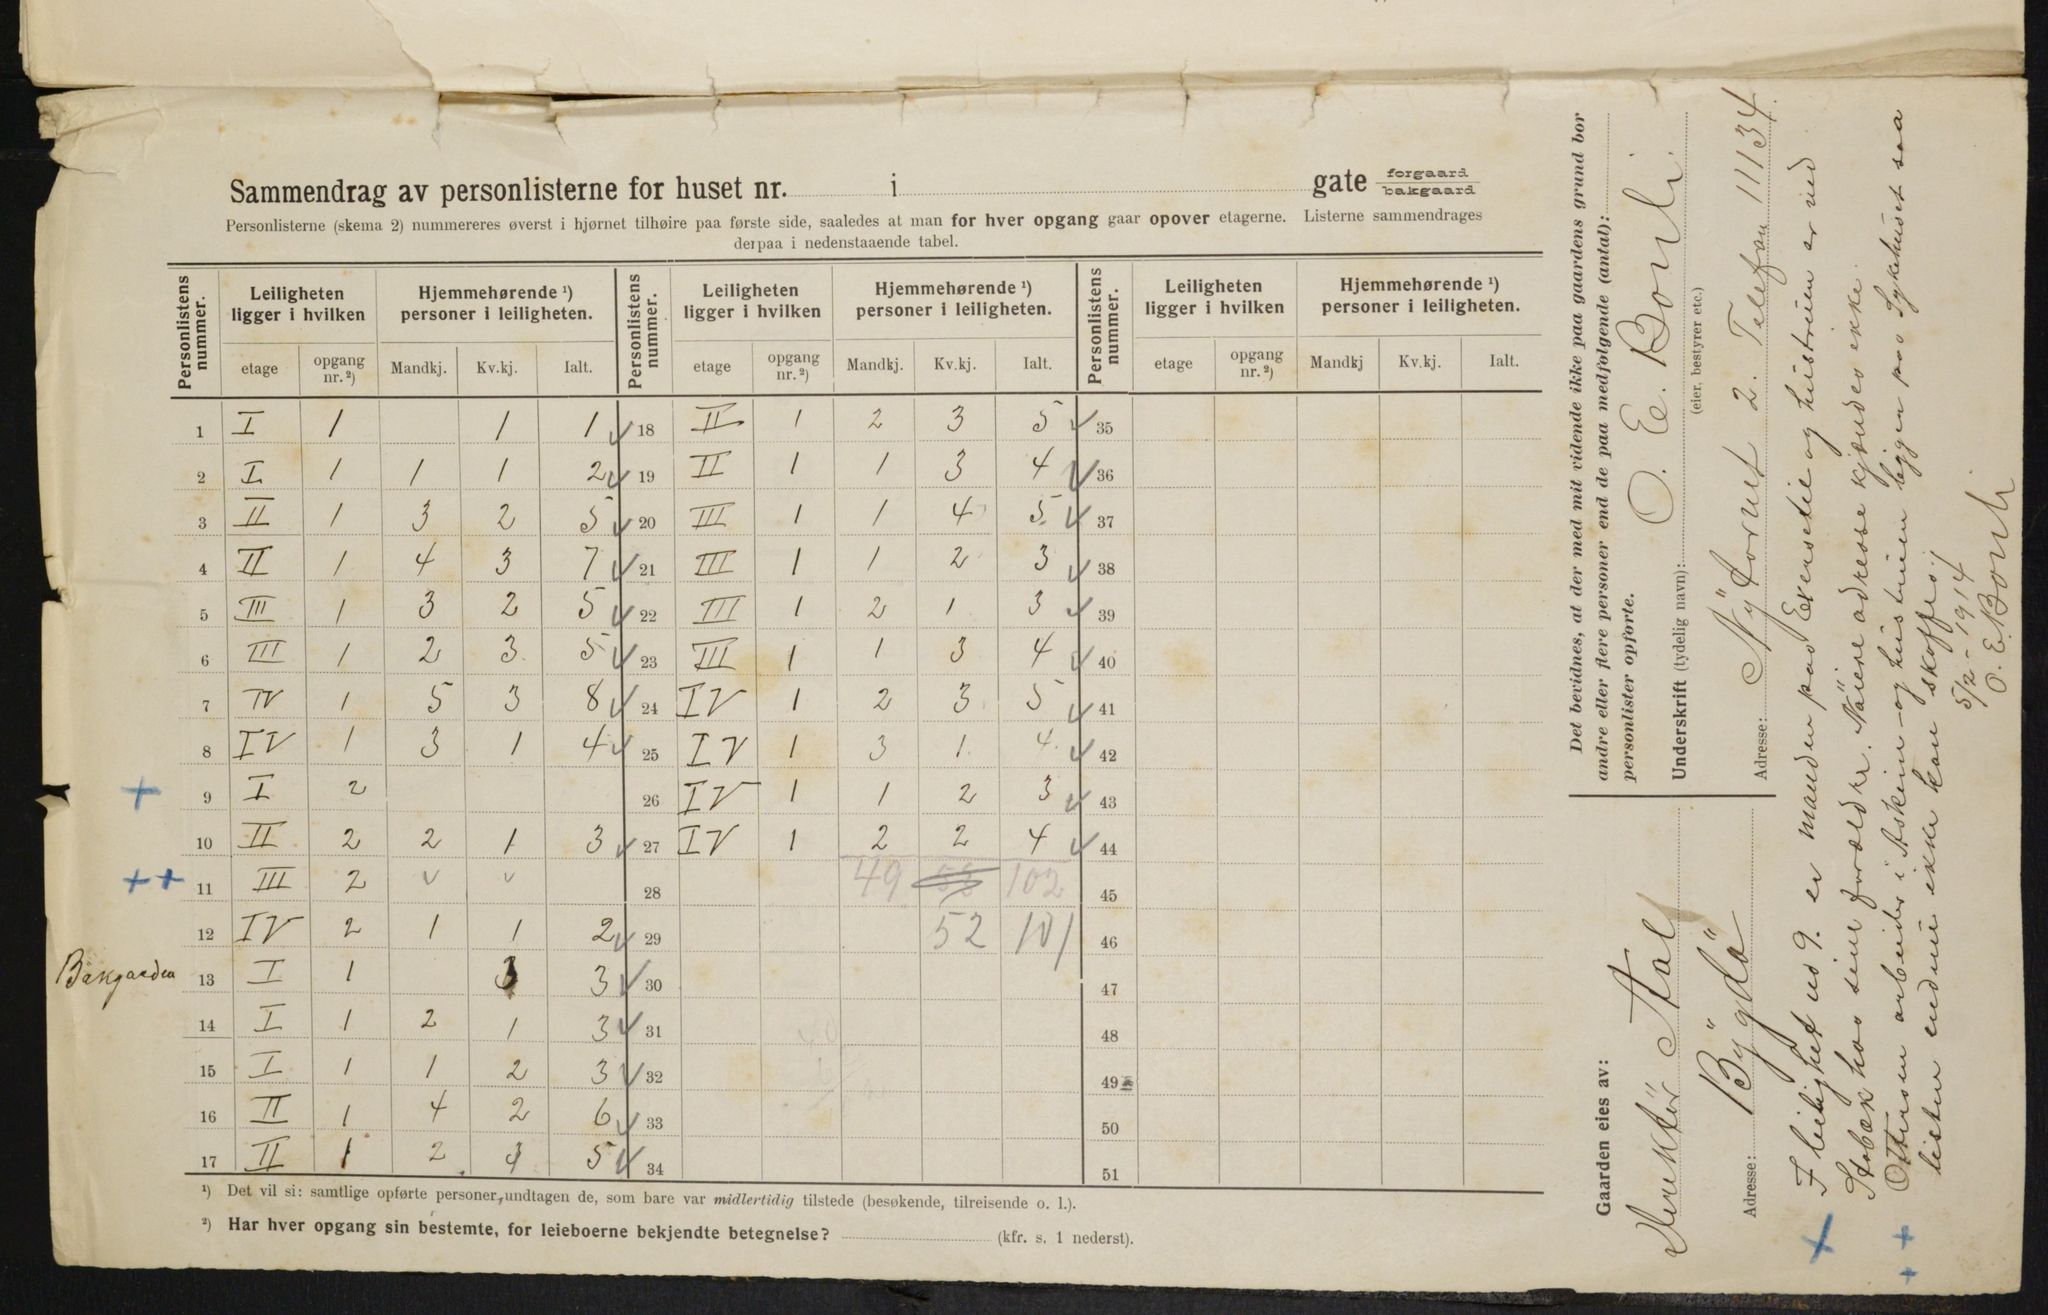 Sammendrag av personlisterne for huset nr. i gate forgaard bakgaard
Personlisterne (skema 2) nummereres øverst i hjørnet tilhøire paa første side, saaledes at man for hver opgang gaar opover etagerne. Listerne sammendrages
derpaa i nedenstaaende tabel.
Personlistens nummer. Leiligheten ligger i hvilken Hjemmehørende ¹) personer i leiligheten. Personlistens nummer. Leiligheten ligger i hvilken Hjemmehørende ¹) personer i leiligheten. Personlistens nummer. Leiligheten ligger i hvilken Hjemmehørende ¹) personer i leiligheten.
etage opgang nr. ²) Mandkj. Kv.kj. Ialt. etage opgang nr. ²) Mandkj. Kv.kj. Ialt. etage opgang nr. ²) Mandkj Kv.kj. Ialt.
1 I 1 1 1 ✓ 18 II 1 2 3 5 ✓ 35
2 I 1 1 1 2 ✓ 19 II 1 1 3 4 ✓ 36
3 II 1 3 2 5 ✓ 20 III 1 1 4 5 ✓ 37
4 II 1 4 3 7 ✓ 21 III 1 1 2 3 ✓ 38
5 III 1 3 2 5 ✓ 22 III 1 2 1 3 ✓ 39
6 III 1 2 3 5 ✓ 23 III 1 1 3 4 ✓ 40
7 IV 1 5 3 8 ✓ 24 IV 1 2 3 5 ✓ 41
8 IV 1 3 1 4 ✓ 25 IV 1 3 1 4 ✓ 42
+ 9 I 2 26 IV 1 1 2 3 ✓ 43
10 II 2 2 1 3 ✓ 27 IV 1 2 2 4 ✓ 44
++ 11 III 2 v v 28 49 102 45
12 IV 2 1 1 2 ✓ 29 52 101 46
Bakgaarden 13 I 1 3 3 ✓ 30 47
14 I 1 2 1 3 ✓ 31 48
15 I 1 1 2 3 ✓ 32 49
16 II 1 4 2 6 ✓ 33 50
17 II 1 2 3 5 ✓ 34 51
¹) Det vil si: samtlige opførte personer, undtagen de, som bare var midlertidig tilstede (besøkende, tilreisende o. l.).
²) Har hver opgang sin bestemte, for leieboerne bekjendte betegnelse? (kfr. s. 1 nederst).
Det bevidnes, at der med mit vidende ikke paa gaardens grund bor
andre eller flere personer end de paa medfølgende (antal):
personlister opførte.
Underskrift (tydelig navn): O. E. Bonli
(eier, bestyrer etc.)
Adresse: Nÿtorvet 2. Telefon 11134.
Gaarden eies av:
Adresse: Bÿgdö
+ I leilighet no 9. er manden paa Eksersetie og hustruen er ned
Stabæk hos sine forældre. Näiere adresse kjendes ikke.
++ Ottersen arbeider i Askim og hustruen ligger paa Sykehuset saa
listen endnu ikke kan skaffes.
5/2-1914
O. E. Bonli